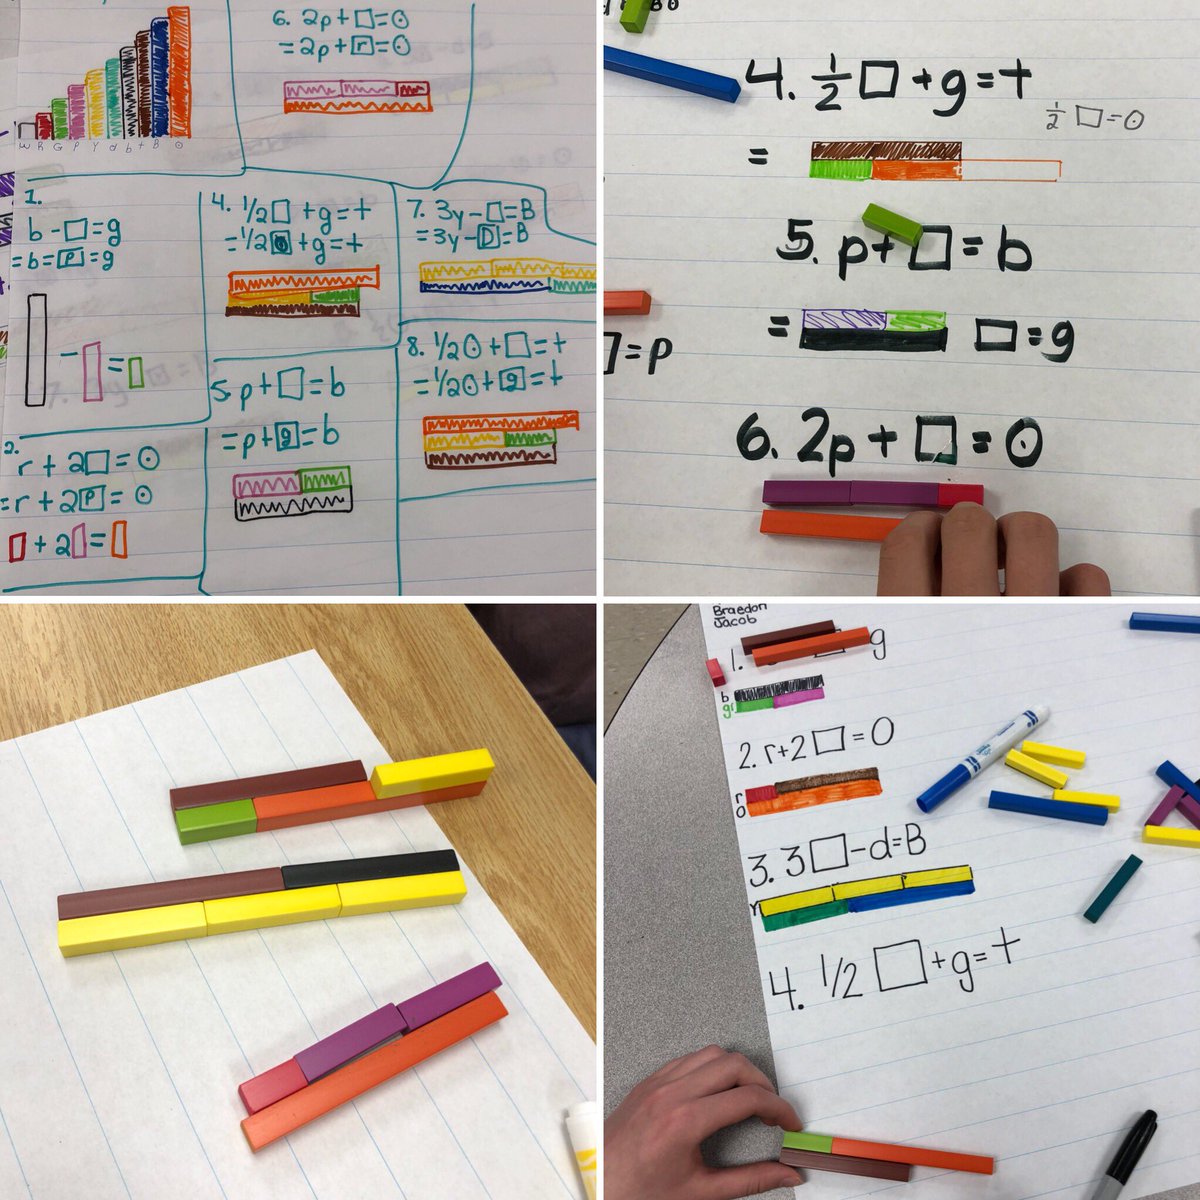 W R G P Y d b t B O
6. 2p + □ = O
= 2p + r = O
1.
b - □ = g
= b = p = g
- =
4. 1/2 □ + g = t
= 1/2 O + g = t
7. 3y - □ = B
= 3y - D = B
2.
r + 2□ = O
= r + 2 p = O
+ 2 =
5. p + □ = b
= p + g = b
8. 1/2 O + □ = t
= 1/2 O + g = t
4. 1/2 □ + g = t
1/2 □ = O
=
5. p + □ = b
= □ = g
□ = p
6. 2p + □ = O
Braedon
Jacob
1. □ g
b
gr
2. r + 2 □ = O
r
O
3. 3 □ - d = B
Y
4. 1/2 □ + g = t